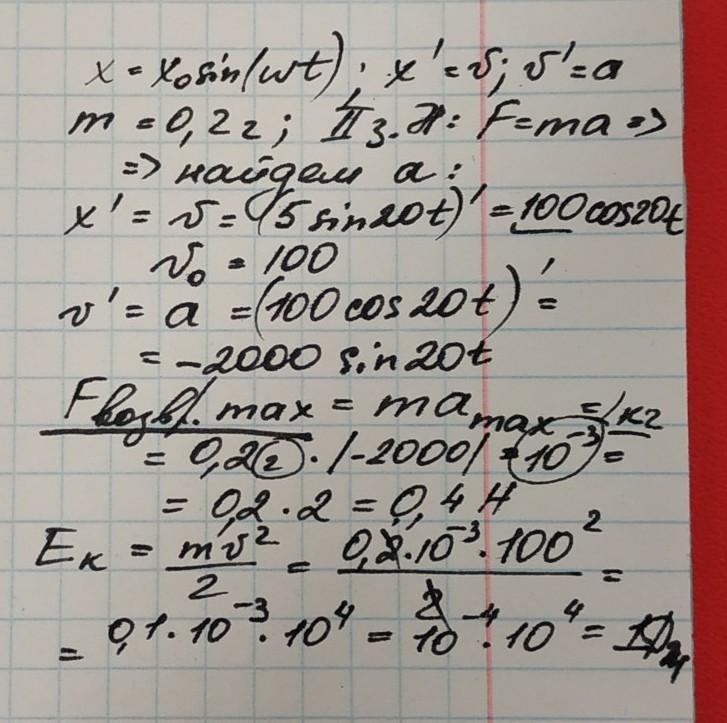 x = x₀sin(ωt); x' = υ; υ' = a
m = 0,2г; II з.Н: F=ma =>
=> найдем a:
x' = υ = (5 sin20t)' = 100cos20t
υ₀ = 100
υ' = a = (100cos20t)' =
= -2000 sin20t
Fвозвр. max = ma max = /кг
= 0,2г · |-2000| · 10⁻³ =
= 0,2 · 2 = 0,4 Н
Eк = mυ²/2 = 0,2·10⁻³·100²/2 =
= 0,1·10⁻³·10⁴ = 10⁻⁴·10⁴ = 1Дж